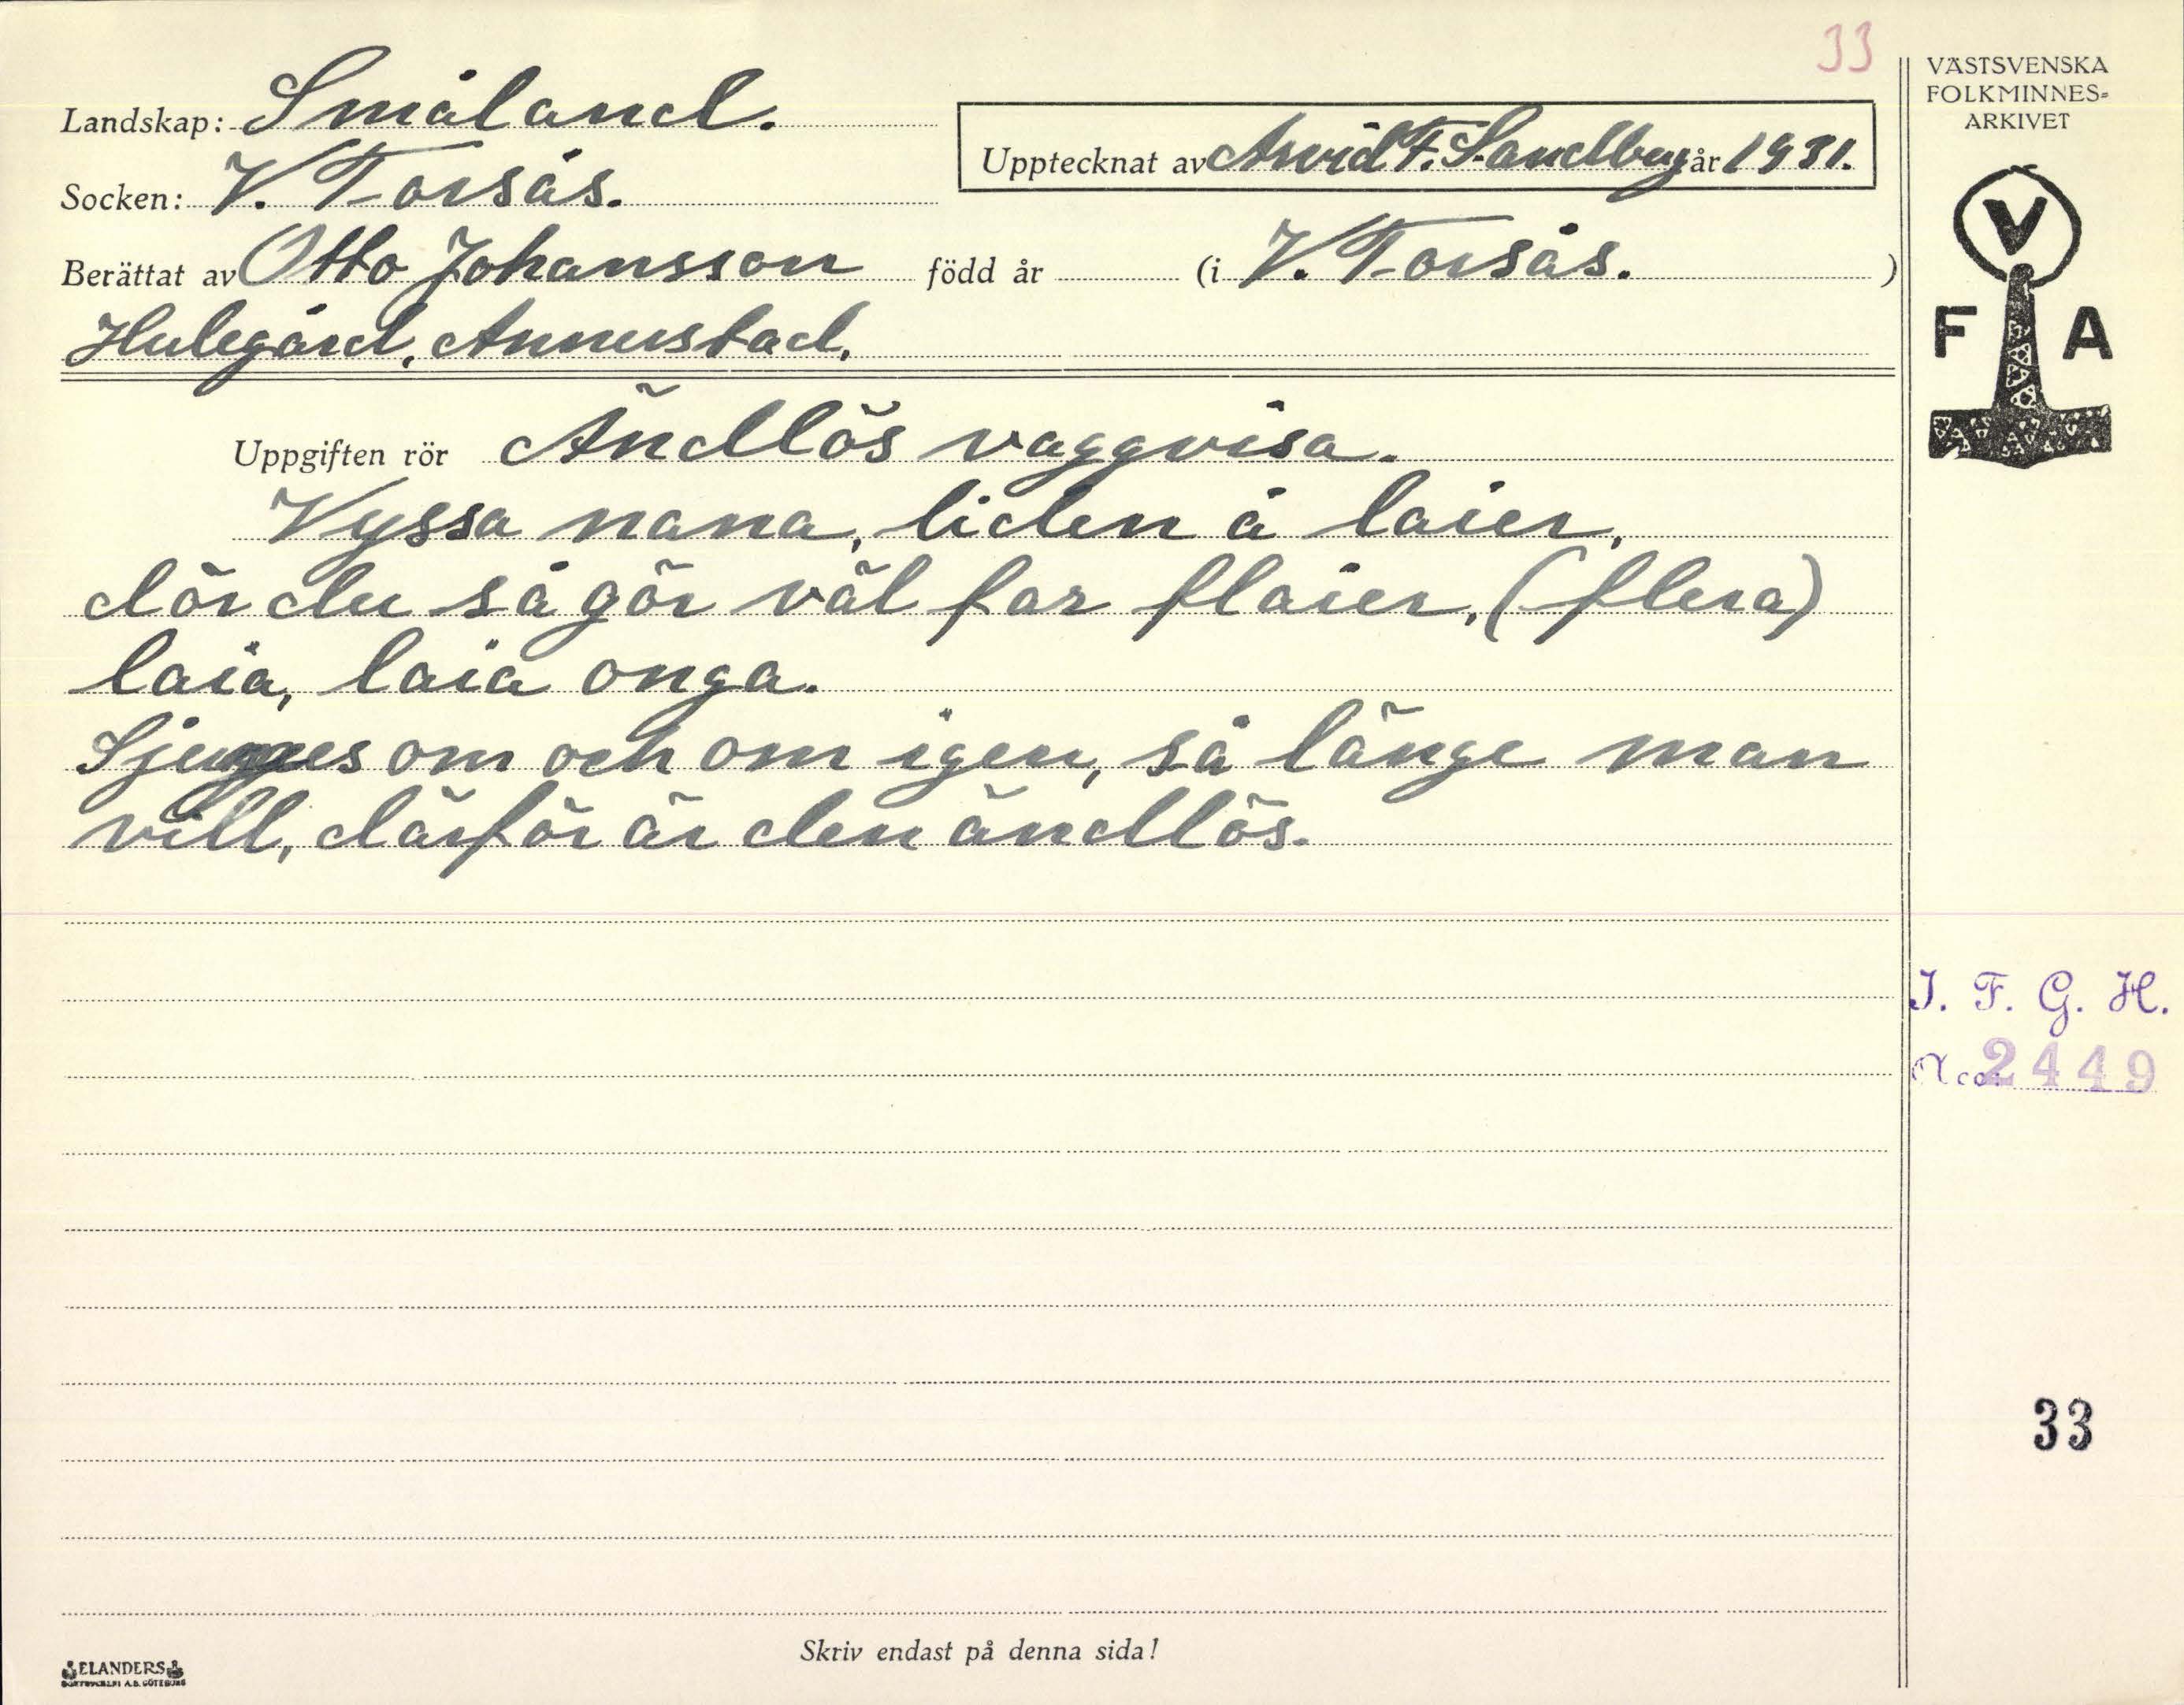 33
Landskap: Småland.
Upptecknat av Arvid F. Sandberg år 1931.
Socken: V. Torsås.
Berättat av Otto Johansson född år (i V. Torsås. )
Hulegård, Annerstad.
Uppgiften rör Ändlös vaggvisa.
Vyssa nana, liden å laier,
dör du så gör väl far flaier, (flera)
laia, laia onga.
Sjunges om och om igen, så länge man
vill, därför är den ändlös.
Skriv endast på denna sida!
ELANDERS
BOKTRYCKERI A.B. GÖTEBORG
VÄSTSVENSKA
FOLKMINNES=
ARKIVET
V
F A
I. F. G. H.
Acc. 2449
33